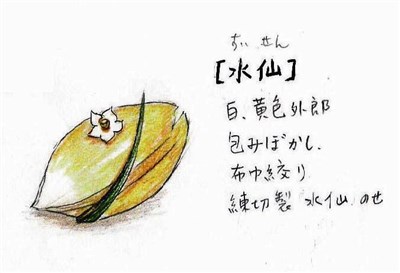 すいせん
[水仙]
白、黄色外郎
包みぼかし.
布巾絞り
練切製 水仙 のせ